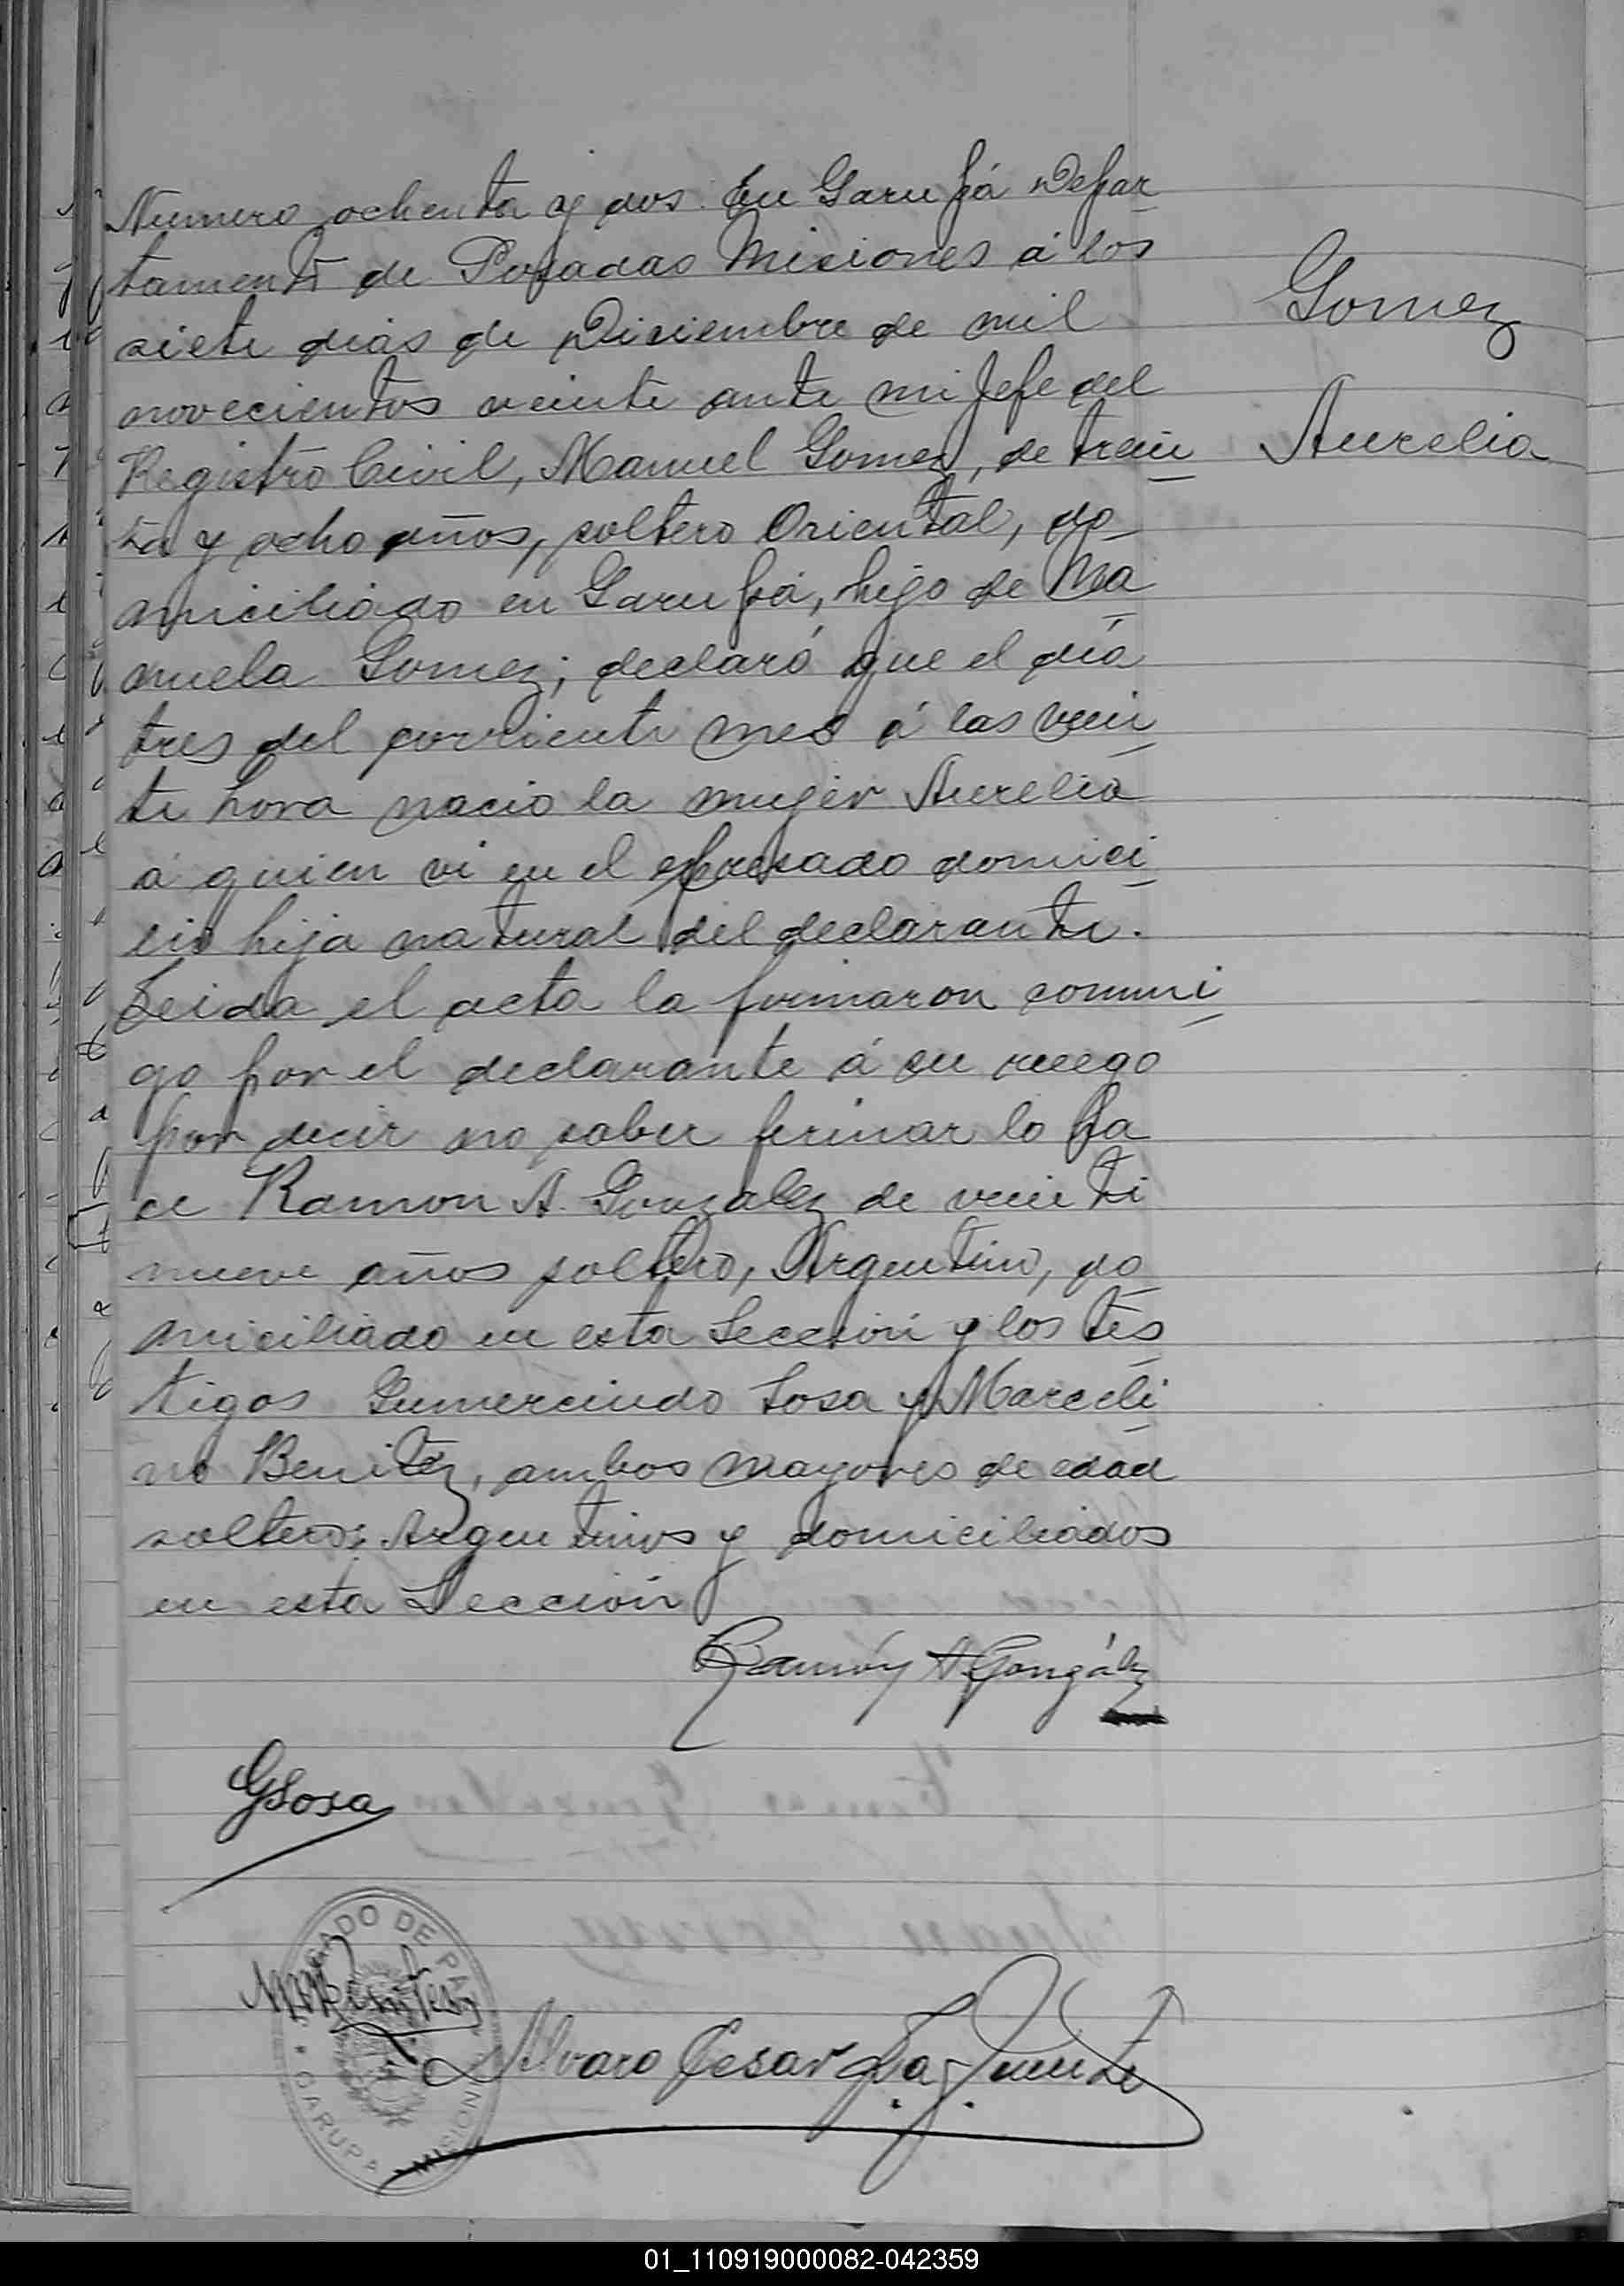 Numero ochenta y dos. En Garupá Depar
tamento de Posadas Misiones á los
siete dias de Diciembre de mil
novecientos veinte ante mi Jefe del
Registro Civil, Manuel Gomez, de trein
ta y ocho años, soltero Oriental, do
miciliado en Garupá, hijo de Ma
nuela Gomez; declaró que el día
tres del corriente mes á las vein
te hora nacio la mujer Aurelia
á quien vi en el espresado domici
lio hija natural del declarante.
Leida el acta la firmaron conmi
go por el declarante á su ruego
por decir no saber firmar lo ha
ce Ramon A. Gonzalez de veinti
nueve años soltero, Argentino, do
miciliado en esta Sección y los tes
tigos Gumercindo Sosa y Marceli
no Benitez, ambos mayores de edad
solteros Argentinos y domiciliados
en esta Sección
Gomez
Aurelia
Ramón A González
GSosa
MBenitez
Alvaro Cesar
GADO DE PA
GARUPA - MISION
01_110919000082-042359